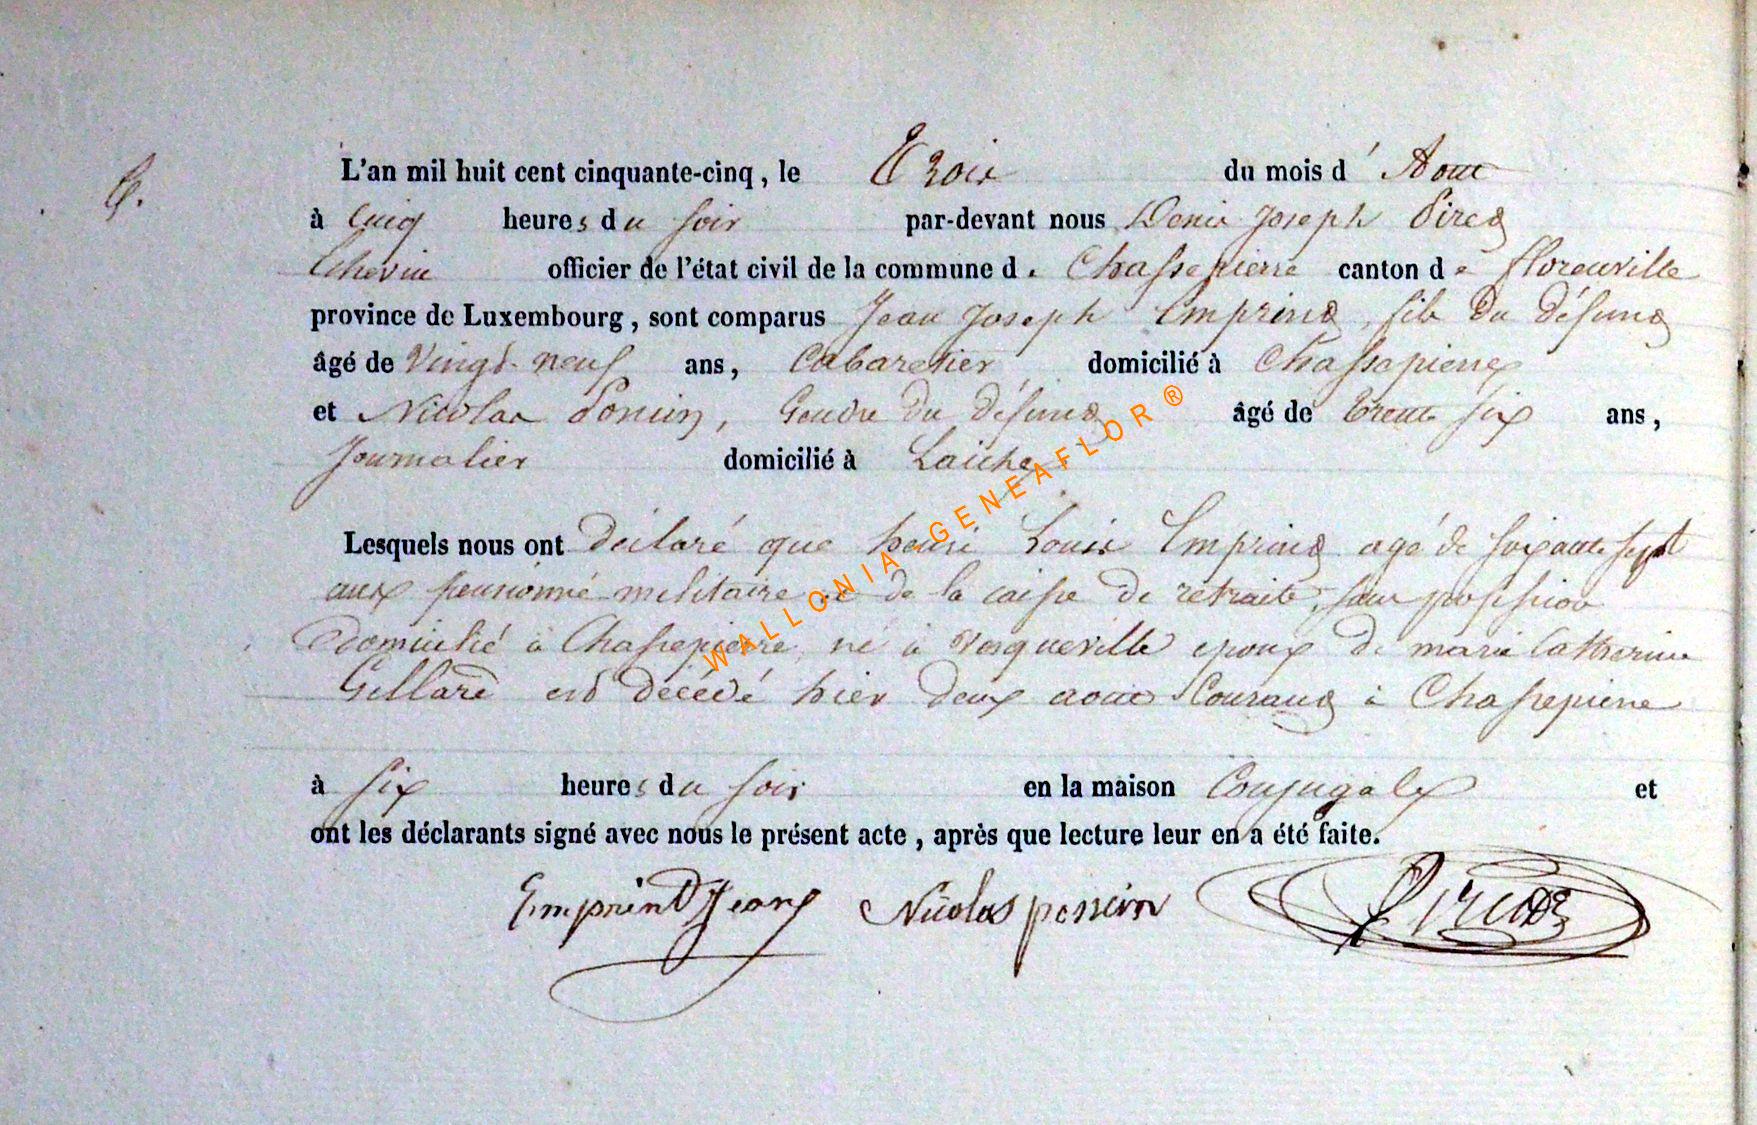 6.
L'an mil huit cent cinquante-cinq, le Trois du mois d'Aout
à Cinq heures du soir par-devant nous Denis Joseph Pircd
Echevin officier de l'état civil de la commune de Chassepierre canton de florenville
province de Luxembourg, sont comparus Jean Joseph Emprind, fils du défund
âgé de Vingt-neuf ans, Cabaretier domicilié à Chassepierre
et Nicolas Poncin, Gendre du défund âgé de trente six ans,
Journalier domicilié à Laiche
Lesquels nous ont déclaré que henri Louis Emprind agé de soixante sept
ans pensionné militaire et de la caisse de retraite, sans possession
domicilié à Chassepierre, né à Vesqueville epoux de marie Catherine
Gillard est décédé hier deux aout Courand à Chassepierre
à six heures du soir en la maison Conjugale et
ont les déclarants signé avec nous le présent acte, après que lecture leur en a été faite.
Emprint Jean Nicolas poncin
WALLONIA-GENEAFLOR®